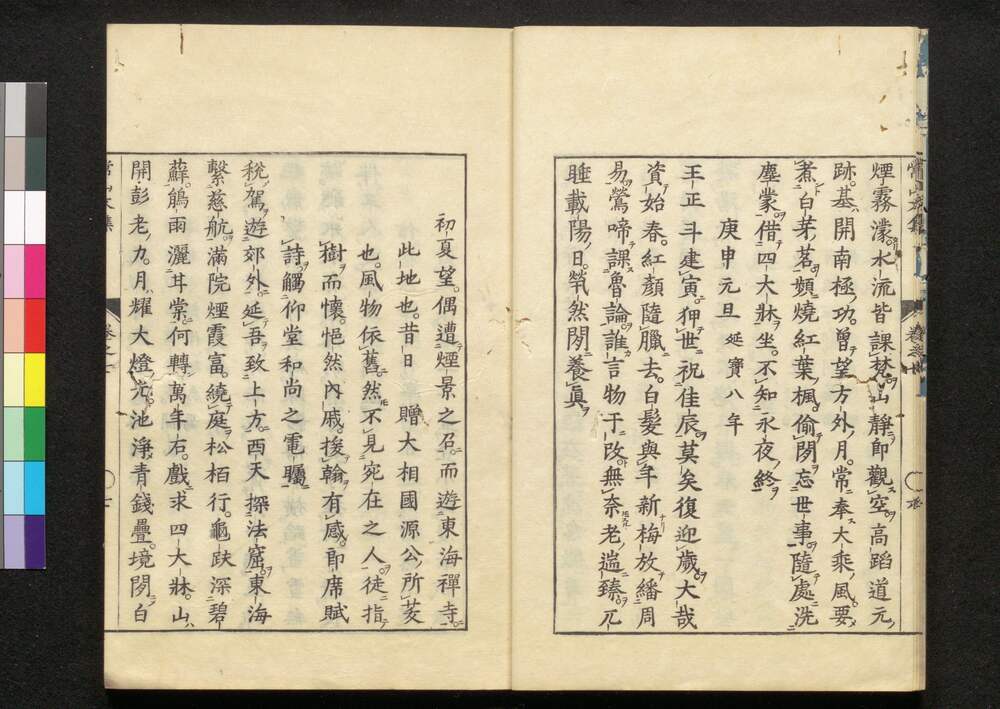 煙霧濛水流皆課梵山靜節觀空高蹈道元
跡基開南極功曽望方外月常奉大乘風要
煮白芽茗頻燒紅葉楓偷閑忘世事隨處洗
塵蒙借四大牀坐不知永夜終
庚申元旦 延寶八年
王正斗建寅狎世祝佳辰莫矣復迎歲大哉
資始春紅顏隨臘去白髮與年新梅放繙周
易鶯啼課魯論誰言物于改無奈老遄臻兀
睡載陽日煢然閑養真
初夏望偶遭煙景之召而遊東海禪寺
此地也昔日 贈大相國源公所茇
也風物依舊然不見宛在之人徒指
樹而懷悒然內戚援翰有感即席賦
詩觸仰堂和尚之電矚
稅駕遊郊外延吾致上方西天探法窟東海
繫慈航滿院煙霞富繞庭松栢行龜趺深碧
蘚鵑雨灑甘棠何轉萬年石戲求四大牀山
開彭老九月耀大燈光池淨青錢疊境閑白
常山文集